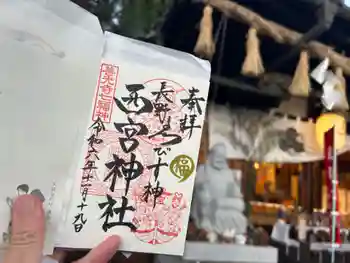 奉拝
長野ゑびす神
福
西宮神社
善光寺七福神
令和六年十一月十九日